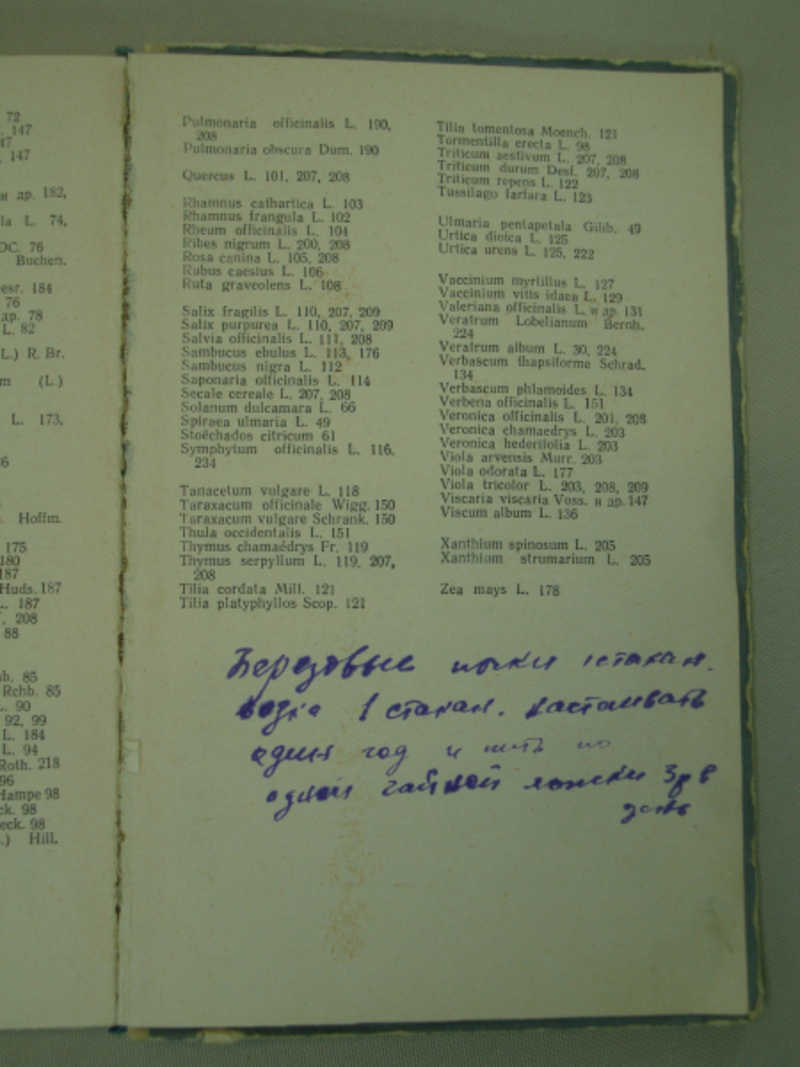 72
147
47
147
и др. 182,
la L. 74,
DC. 76
Buchen.
esr. 184
76
др. 78
L. 82
L.) R. Br.
m (L.)
L. 173,
6
Hoffm.
175
180
187
Huds. 187
L. 187
208
88
b. 85
Rchb. 85
L. 90
92, 99
L. 184
L. 94
Roth. 218
96
Hampe 98
ck. 98
eck. 98
.) Hill.
Pulmonaria officinalis L. 190,
208
Pulmonaria obscura Dum. 190
Quercus L. 101, 207, 208
Rhamnus cathartica L. 103
Rhamnus frangula L. 102
Rheum officinalis L. 104
Ribes nigrum L. 200, 208
Rosa canina L. 105, 208
Rubus caesius L. 106
Ruta graveolens L. 108
Salix fragilis L. 110, 207, 209
Salix purpurea L. 110, 207, 209
Salvia officinalis L. 111, 208
Sambucus ebulus L. 113, 176
Sambucus nigra L. 112
Saponaria officinalis L. 114
Secale cereale L. 207, 208
Solanum dulcamara L. 66
Spiraea ulmaria L. 49
Stoëchados citricum 61
Symphytum officinalis L. 116,
234
Tanacetum vulgare L. 118
Taraxacum officinale Wigg. 150
Taraxacum vulgare Schrank. 150
Thula occidentalis L. 151
Thymus chamaëdrys Fr. 119
Thymus serpyllum L. 119, 207,
208
Tilia cordata Mill. 121
Tilia platyphyllos Scop. 121
Tilia tomentosa Moench. 121
Tormentilla erecta L. 98
Triticum aestivum L. 207, 208
Triticum durum Desf. 207, 208
Triticum repens L. 122
Tussilago farfara L. 123
Ulmaria pentapetala Gilib. 49
Urtica dioica L. 125
Urtica urens L. 125, 222
Vaccinium myrtillus L. 127
Vaccinium vitis idaea L. 129
Valeriana officinalis L. и др. 131
Veratrum Lobelianum Bernh.
224
Veratrum album L. 30, 224
Verbascum thapsiforme Schrad.
134
Verbascum phlamoides L. 134
Verbena officinalis L. 151
Veronica officinalis L. 201, 208
Veronica chamaedrys L. 203
Veronica hederifolia L. 203
Viola arvensis Murr. 203
Viola odorata L. 177
Viola tricolor L. 203, 208, 209
Viscaria viscaria Voss. и др. 147
Viscum album L. 136
Xanthium spinosum L. 205
Xanthium strumarium L. 205
Zea mays L. 178
Березовые почки 1 стакан.
1 стакан. настаивать
один год и пить по
одной чайной ложки 3 р в
день